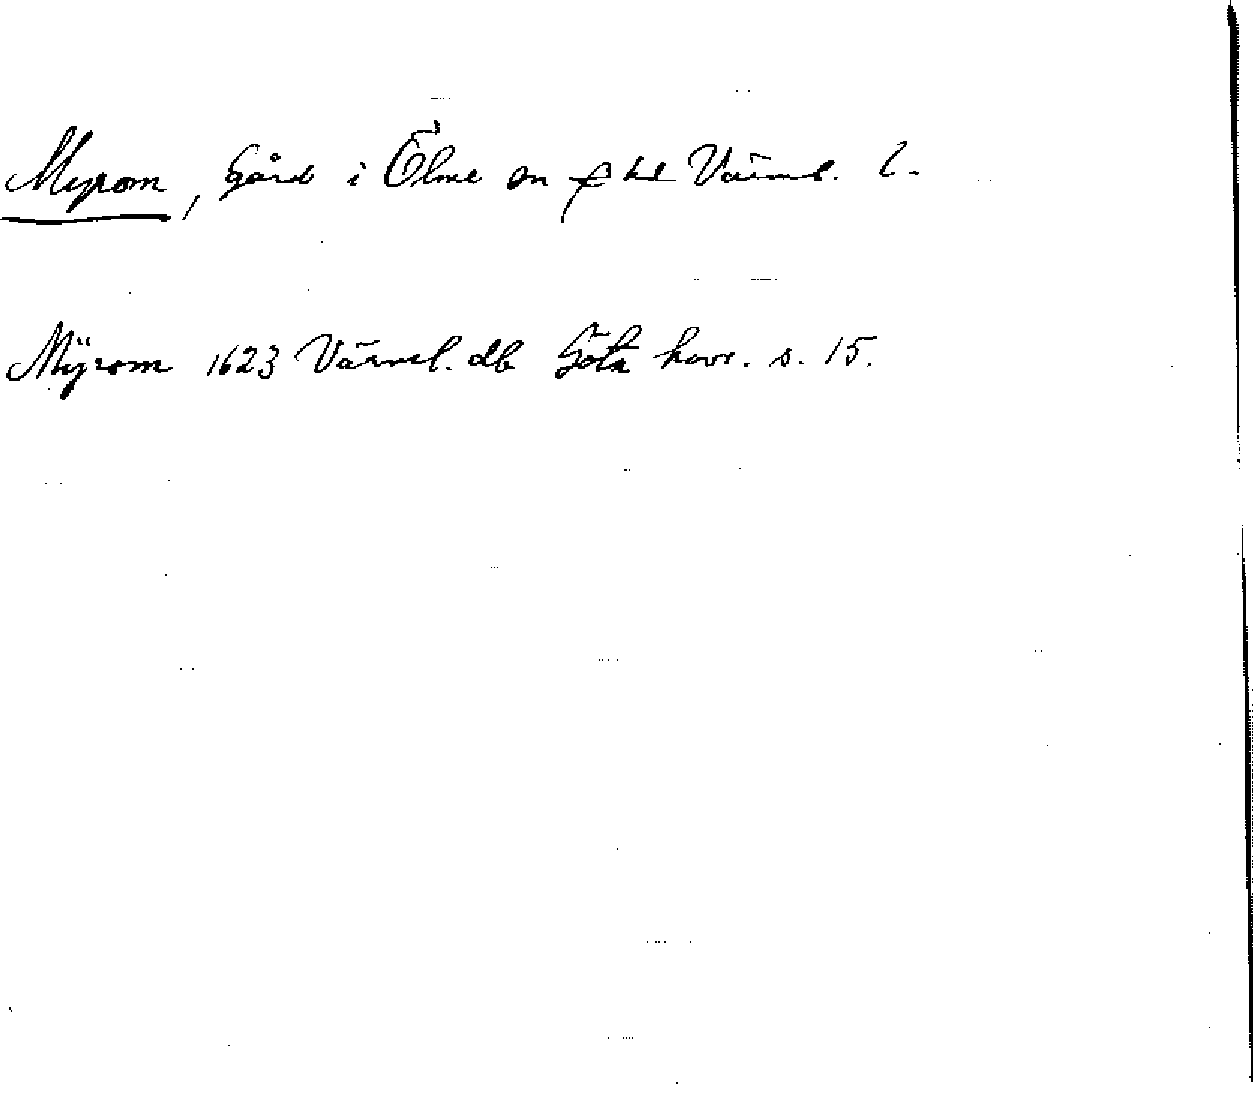 Myrom, Gård i Ölme sn o hd Värml. l.
Mÿrom 1623 Värml. db Göta hovr. s. 15.